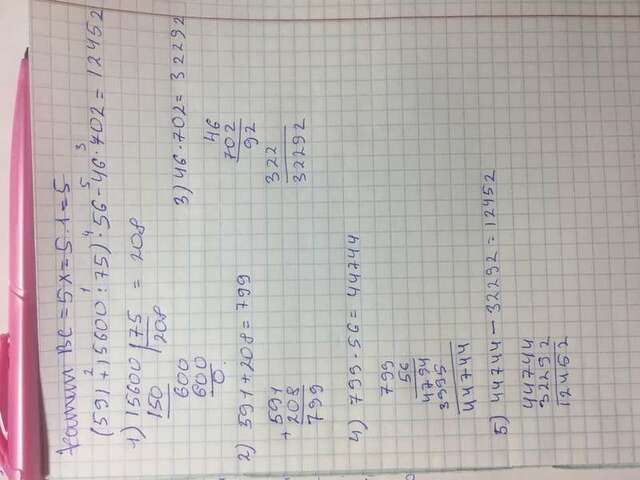 BC = 5x = 5 . 1 = 5
(591 + 15600 : 75) · 56 - 46 · 702 = 12452
2 1 4 5 3
1) 15600 | 75 = 208
150 208
600
600
0.
2) 591 + 208 = 799
+ 591
208
799
3) 46 · 702 = 32292
46
702
92
322
32292
4) 799 · 56 = 44744
799
56
4794
3995
44744
5) 44744 - 32292 = 12452
44744
32292
12452